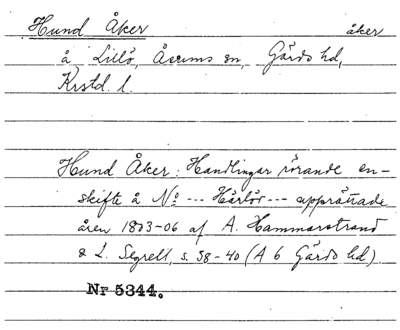 Hund Åker åker
å Lillö, Åsums sn, Gärds hd,
Krstd. l.
Hund Åker: Handlingar rörande en-
skifte å No --- Härlöv --- upprättade
åren 1803-06 af A. Hammarstrand
& L. Segrell, s. 38-40 (A 6 Gärds hd)
Nr 5344.